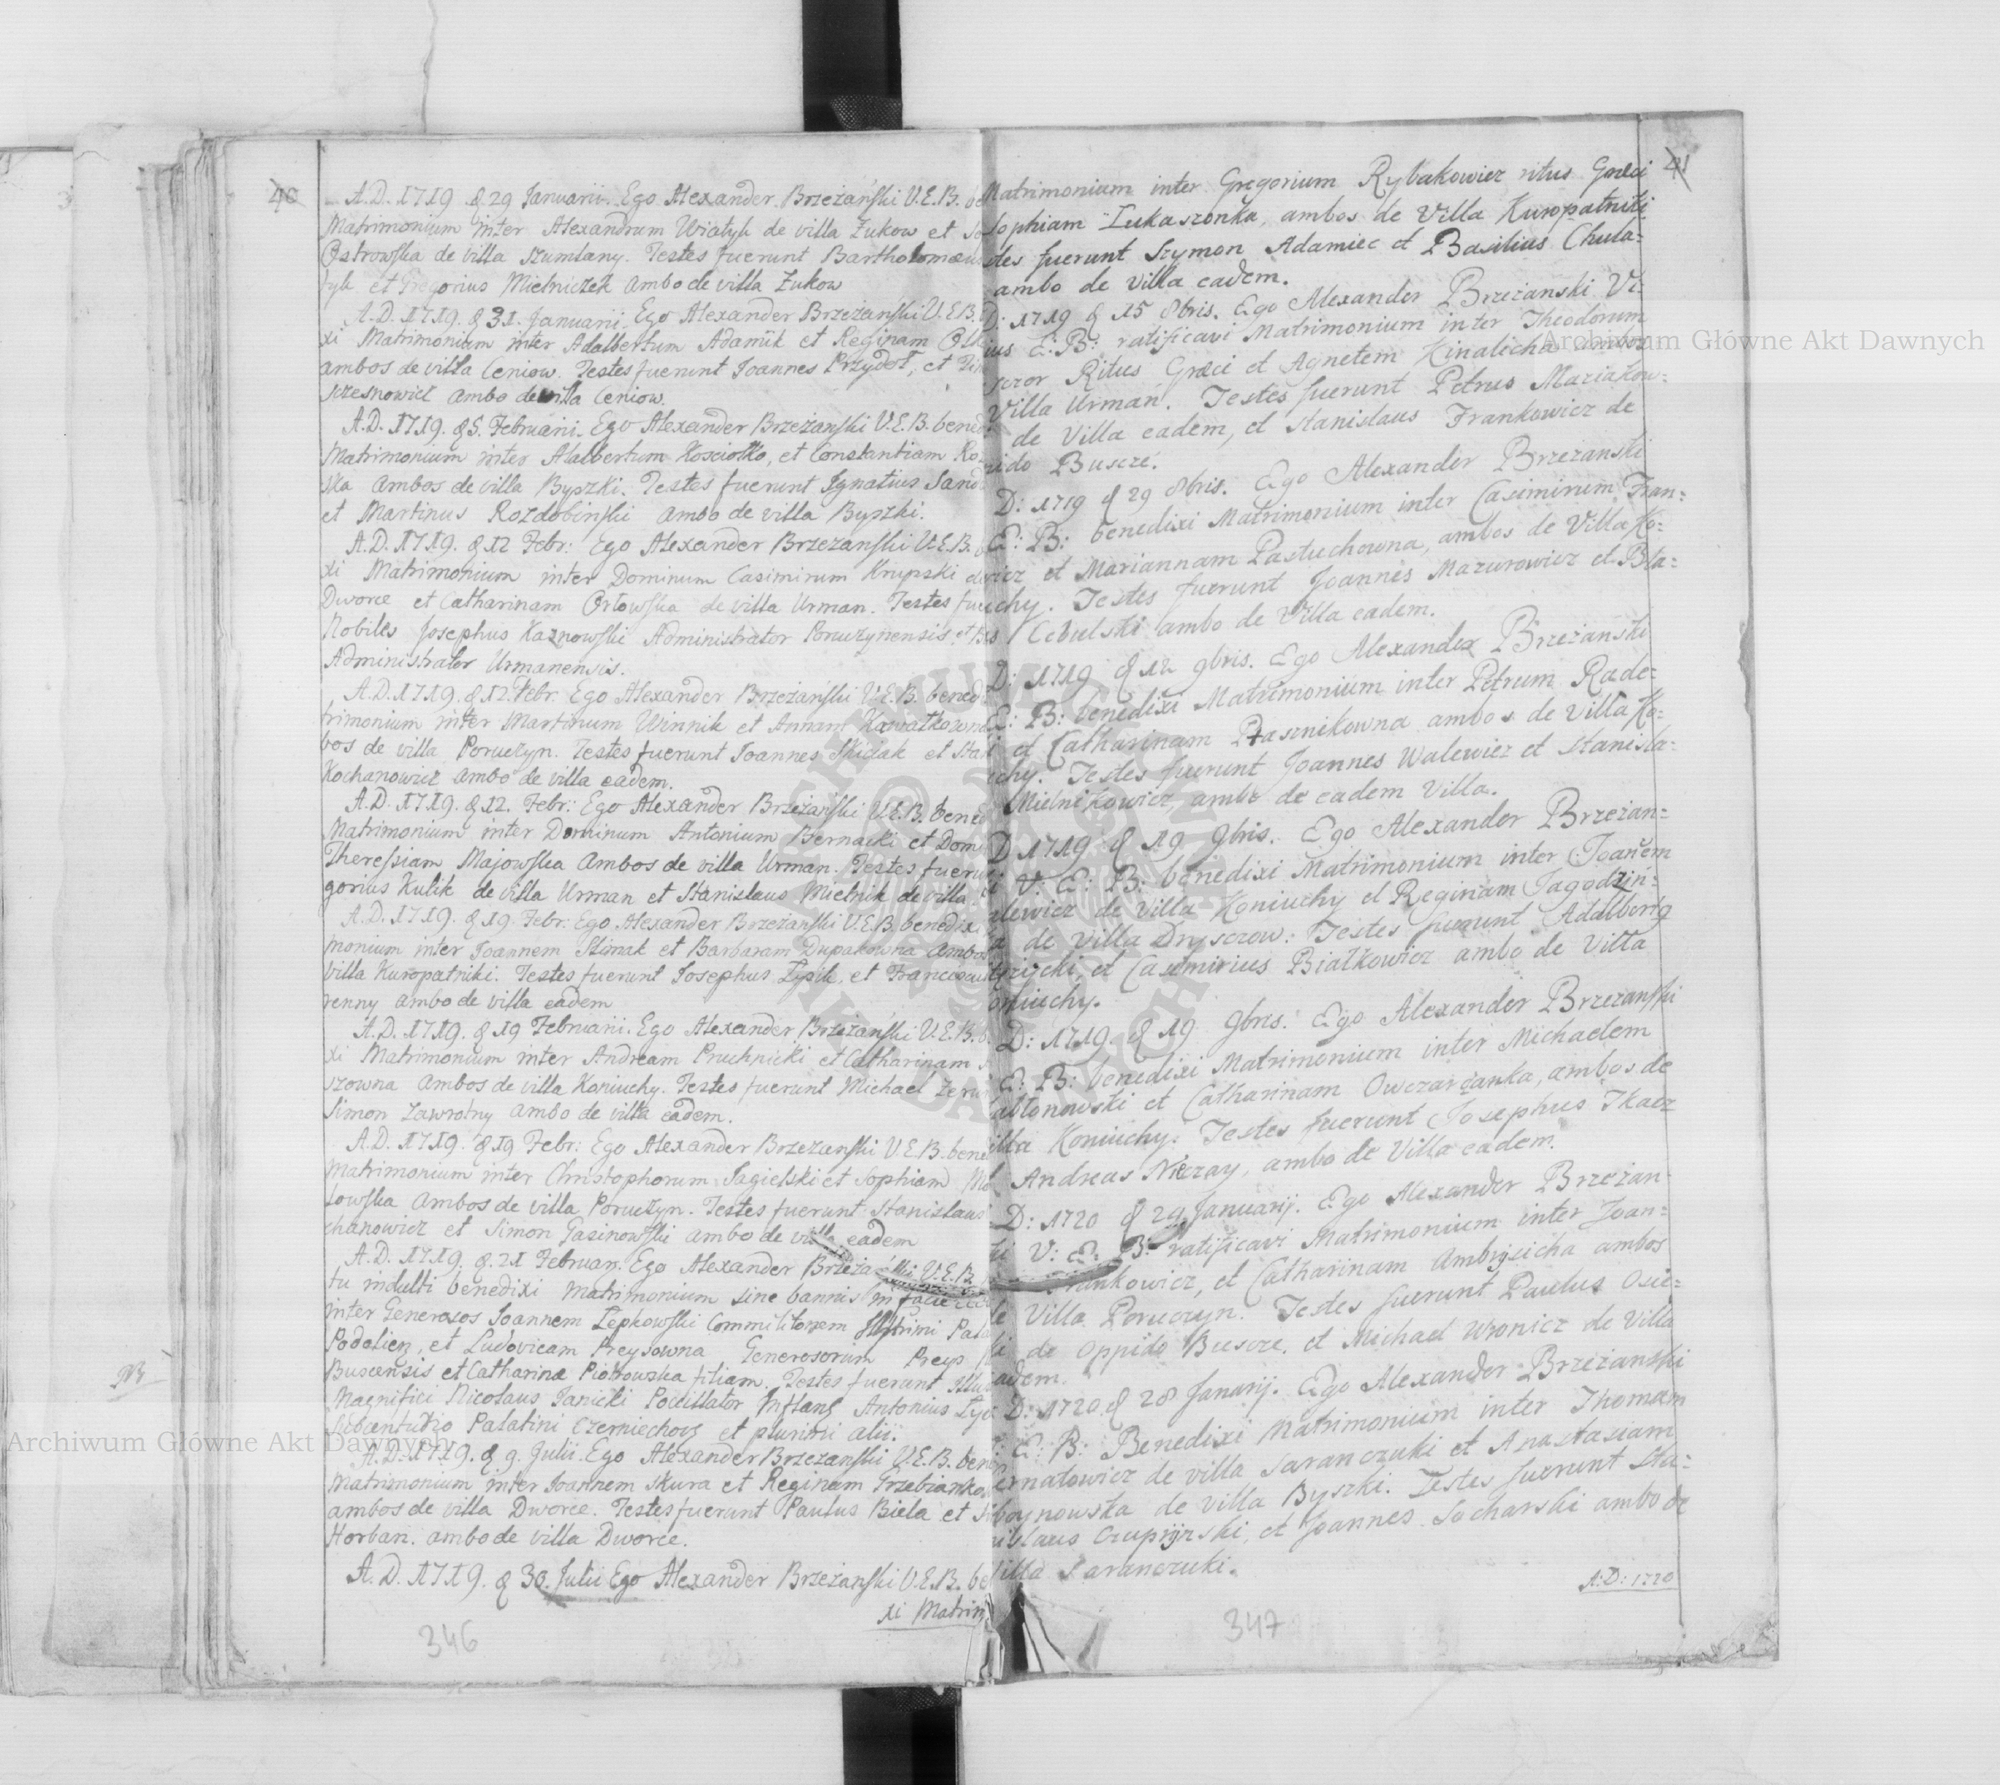 40
A.D. 1719. & 29 Januarii. Ego Alexander Brzeżański V.E.B. be
Matrimonium inter Alexandrum Wiatyk de villa Żukow et So
Ostrowska de villa Szumlany. Testes fuerunt Bartholomæus
et Gregorius Mielniczek ambo de villa Żukow
A.D. 1719. & 31. Januarii. Ego Alexander Brzeżański V.E.B.
xi Matrimonium inter Adalbertum Adamik et Reginam
ambos de villa Ceniow. Testes fuerunt Joannes Przydot, et
szesnowicz ambo de villa Ceniow.
A.D. 1719. & 5. Februarii. Ego Alexander Brzeżański V.E.B. bened
Matrimonium inter Adalbertum Kosciołko, et Constantiam Ro
ska ambos de villa Byszki. Testes fuerunt Ignatius Sand
et Martinus Rozdobinski ambo de villa Byszki.
A.D. 1719. & 12 Febr: Ego Alexander Brzeżański V.E.B.
xi Matrimonium inter Dominum Casimirum Krupski de
Dworce et Catharinam Orłowska de villa Urman. Testes fue
Nobiles Josephus Kaznowski Administrator Poruczynensis et
Administrator Urmanensis.
A.D. 1719. & 12. Febr. Ego Alexander Brzeżański V.E.B. bened
trimonium inter Martinum Winnik et Annam Kawałkowna
bos de villa Poruczyn. Testes fuerunt Joannes Skidak et Sta
Kochanowicz ambo de villa eadem.
A.D. 1719. & 12. Febr: Ego Alexander Brzeżański V.E.B. bened
Matrimonium inter Dominum Antonium Biernacki et Dom
Theressiam Majowska ambos de villa Urman. Testes fuerun
gorius Kulik de villa Urman et Stanislaus Mielnik de villa
A.D. 1719. & 19. Febr: Ego Alexander Brzeżański V.E.B. benedixi
monium inter Joannem Slimak et Barbaram Dupakowna ambos
villa Kuropatniki. Testes fuerunt Josephus Łysik, et Franciscus
renny ambo de villa eadem
A.D. 1719. & 19 Februarii. Ego Alexander Brzeżański V.E.B. b
xi Matrimonium inter Andream Pruchnicki et Catharinam
szowna ambos de villa Koniuchy. Testes fuerunt Michael
Simon Zawrotny ambo de villa eadem.
A.D. 1719. & 19 Febr: Ego Alexander Brzeżański V.E.B. bene
Matrimonium inter Christophorum Jagielski et Sophiam
Łowska ambos de villa Poruczyn. Testes fuerunt Stanislaus
chanowicz et Simon Gasinowski ambo de villa eadem
A.D. 1719. & 21 Februari. Ego Alexander Brzeżański V.E.B.
tu indulti benedixi Matrimonium sine bannis in facie
inter Generosos Joannem Łepkowski Commilitonem Pala
Podoliæ, et Ludovicam Preysowna Generosorum Preys
Buscensis et Catharinæ Piotrowska filiam. Testes fuerant
Magnifici Nicolaus Janicki Pocillator Antonius
Palatini Czerniechov et plurimi alii.
A.D. 1719. & 9. Julii. Ego Alexander Brzeżański V.E.B. bened
Matrimonium inter Joannem Skura et Reginam Grzebianko
ambos de villa Dworce. Testes fuerunt Paulus Biela et
Horbań. ambo de villa Dworce.
A.D. 1719. & 30. Julii Ego Alexander Brzeżański V.E.B. be
xi Matrim
346
41
Matrimonium inter Gregorium Rybakowicz ritus Græci
Sophiam Łukaszonka, ambos de Villa Kuropatniki
stes fuerunt Szymon Adamiec et Basilius Chuda-
ambo de Villa eadem.
D: 1719 & 15 8bris. Ego Alexander Brzeżanski Vi-
ius E: B: ratificavi Matrimonium inter Theodorum
Ritus Græci et Agnetem Kinalicha ambos
Villa Urmań. Testes fuerunt Petrus Maziakow-
de Villa eadem, et Stanislaus Frankowicz de
pido Buscze.
D: 1719 & 29 8bris. Ego Alexander Brzeżanski
E: B: benedixi Matrimonium inter Casimirum Fran-
wicz et Mariannam Pastuchowna, ambos de Villa Ko-
uchy. Testes fuerunt Joannes Mazurowicz et Bla-
s Cebulski ambo de Villa eadem.
D: 1719 & 12 9bris. Ego Alexander Brzeżanski
E: B: benedixi Matrimonium inter Petrum Rade-
et Catharinam Ptasznikowna ambos de Villa Ko-
uchy. Testes fuerunt Joannes Walewicz et Stanisla-
Mielnikowicz, ambo de eadem Villa.
D 1719 & 19 9bris. Ego Alexander Brzeżan-
i V: E: B: benedixi Matrimonium inter Joanem
alewicz de Villa Koniuchy et Reginam Jagodziń-
a de Villa Dryszczow. Testes fuerunt Adalbert9
et Casimirius Białkowicz ambo de Villa
oniuchy.
D: 1719. & 19 9bris. Ego Alexander Brzeżański
E: B: benedixi Matrimonium inter Michaelem
abłonowski et Catharinam Owczarzanka, ambos de
illa Koniuchy. Testes fuerunt Josephus Tkacz
Andreas Nieczay, ambo de Villa eadem.
D: 1720 & 29 Januarij. Ego Alexander Brzeżan-
i V: E: B: ratificavi Matrimonium inter Joan-
Frankowicz, et Catharinam Ambrysicha ambos
de Villa Poruczyn. Testes fuerunt Paulus Osie-
ki de Oppido Buscze, et Michael Wronicz de Villa
eadem.
D: 1720 & 28 Januarij. Ego Alexander Brzeżanski
E: B: Benedixi Matrimonium inter Thomam
ernatowicz de villa Saranczuki et Anastasiam
oynowska de Villa Byszki. Testes fuerunt Sta-
nislaus Czupryński, et Joannes Socharski ambo de
Villa Saranczuki.
A:D: 1720
347
Archiwum Główne Akt Dawnych
Archiwum Główne Akt Dawnych